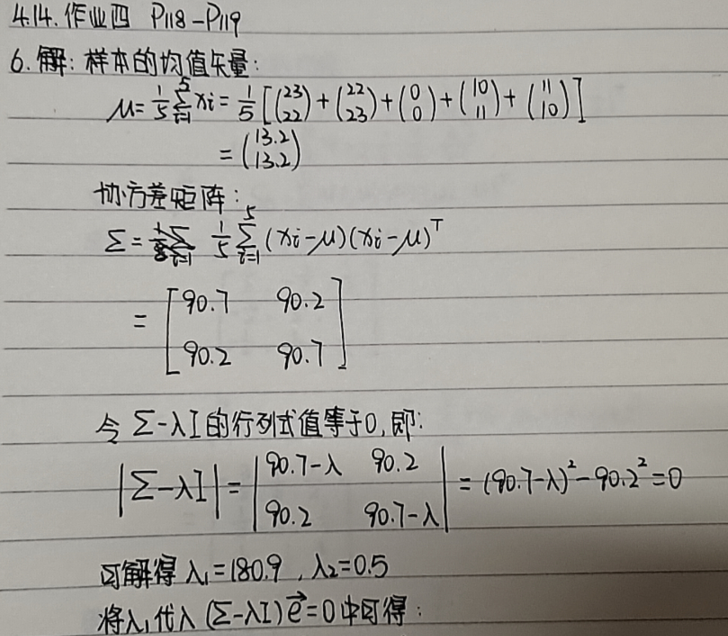 4.14.作业四 P118-P119
6.解:样本的均值矢量:
μ=1/5 5∑i=1 xi=1/5[(23 22)+(22 23)+(0 0)+(10 11)+(11 10)]
=(13.2 13.2)
协方差矩阵:
Σ= 1/5 5∑i=1 (xi-μ)(xi-μ)T
=[90.7 90.2
90.2 90.7]
令Σ-λI的行列式值等于0,即:
|Σ-λI|=|90.7-λ 90.2
90.2 90.7-λ|=(90.7-λ)²-90.2²=0
可解得λ1=180.9,λ2=0.5
将λ1代入(Σ-λI)e⃗=0中可得: